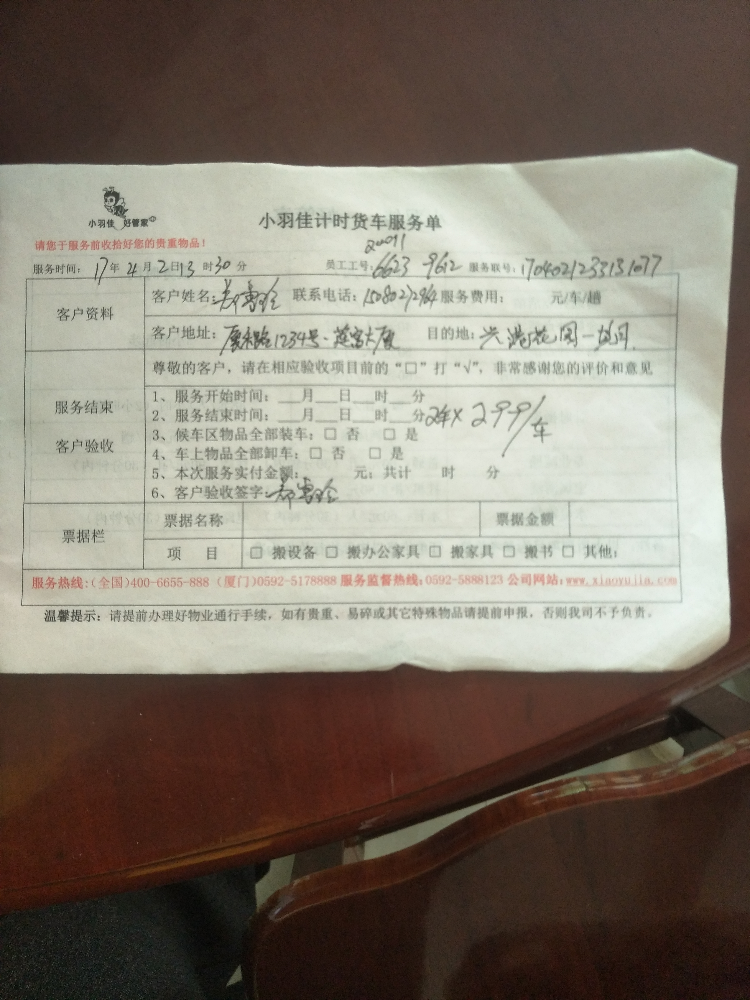 小羽佳 好管家
小羽佳计时货车服务单
请您于服务前收拾好您的贵重物品！
20011
服务时间：17年4月2日13时30分 员工工号：6623 9612 服务联号：1704021233131077
客户资料
客户姓名： 联系电话： 服务费用： 元/车/趟
客户地址：厦禾路1234号 大厦 目的地： 花园一
尊敬的客户，请在相应验收项目前的“□”打“√”，非常感谢您的评价和意见
服务结束
客户验收
1、服务开始时间：___月___日___时___分
2、服务结束时间：___月___日___时___分 2车×299/车
3、候车区物品全部装车：□ 否 □ 是
4、车上物品全部卸车：□ 否 □ 是
5、本次服务实付金额： 元；共计 时 分
6、客户验收签字：
票据栏
票据名称 票据金额
项 目 □ 搬设备 □ 搬办公家具 □ 搬家具 □ 搬书 □ 其他：
服务热线：(全国)400-6655-888 (厦门)0592-5178888 服务监督热线：0592-5888123 公司网站：www.xiaoyujia.com
温馨提示：请提前办理好物业通行手续，如有贵重、易碎或其它特殊物品请提前申报，否则我司不予负责。